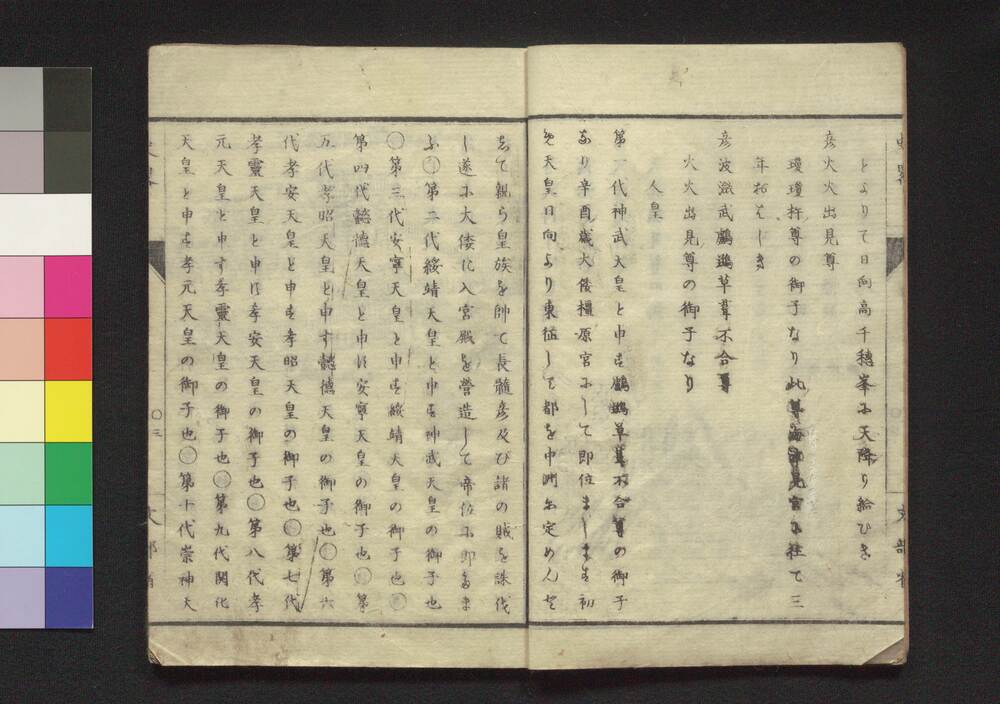 とよりて日向高千穂峯に天降り給ひき
彦火火出見尊
瓊瓊杵尊の御子なり此尊海神宮に往て三
年おはしき
彦波瀲武鸕鷀草葺不合尊
火火出見尊の御子なり
人皇
第一代神武天皇と申す鸕鷀草葺不合尊の御子
なり辛酉歳大倭橿原宮にして即位まします初
め天皇日向より東征して都を中洲に定めんと
して親ら皇族を帥て長髄彦及び諸の賊を誅伐
し遂に大倭に入宮殿を営造して帝位に即きま
ふ〇第二代綏靖天皇と申す神武天皇の御子也
〇第三代安寧天皇と申す綏靖天皇の御子也〇
第四代懿徳天皇と申す安寧天皇の御子也〇第
五代孝昭天皇と申す懿徳天皇の御子也〇第六
代孝安天皇と申す孝昭天皇の御子也〇第七代
孝靈天皇と申す孝安天皇の御子也〇第八代孝
元天皇と申す孝靈天皇の御子也〇第九代開化
天皇と申す孝元天皇の御子也〇第十代崇神天
〇三